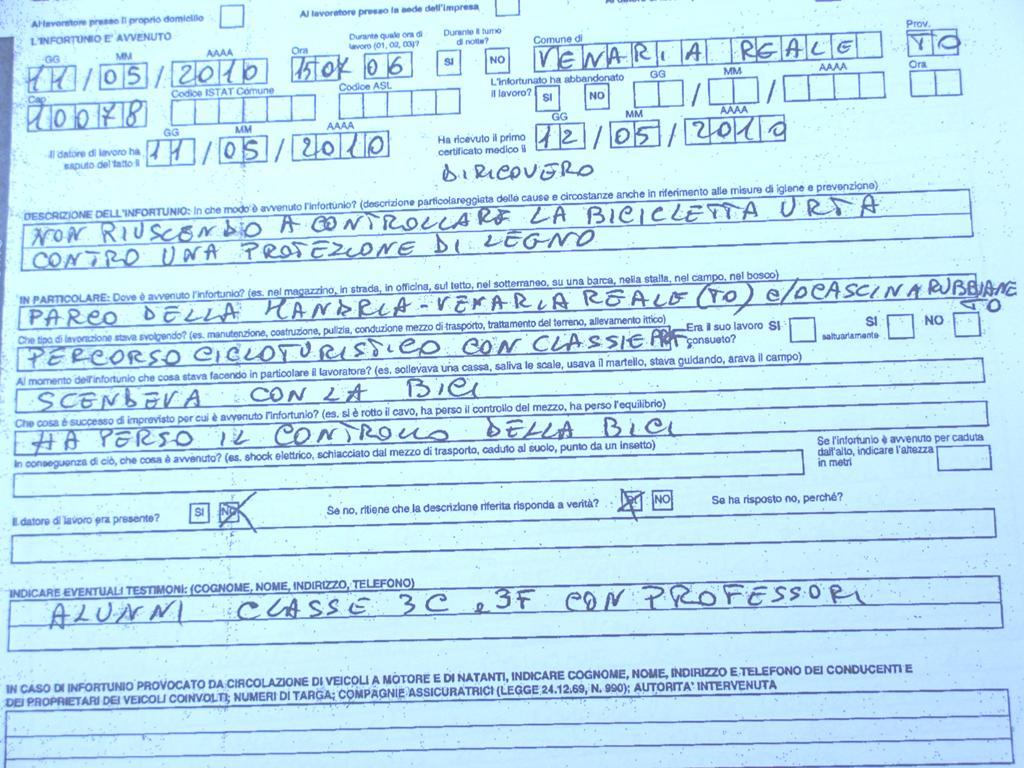 Al lavoratore presso il proprio domicilio
Al lavoratore presso la sede dell'impresa
L'INFORTUNIO E' AVVENUTO
GG MM AAAA
11/05/2010
Ora
Durante quale ora di lavoro (01, 02, 03)?
06
Durante il turno di notte?
SI NO
Comune di
VENARIA REALE
Prov.
TO
Cap
10078
Codice ISTAT Comune
Codice ASL
L'infortunato ha abbandonato il lavoro?
SI NO
GG MM AAAA
Ora
Il datore di lavoro ha saputo del fatto il
GG MM AAAA
11/05/2010
Ha ricevuto il primo certificato medico il
GG MM AAAA
12/05/2010
DI RICOVERO
DESCRIZIONE DELL'INFORTUNIO: In che modo è avvenuto l'infortunio? (descrizione particolareggiata delle cause e circostanze anche in riferimento alle misure di igiene e prevenzione)
NON RIUSCENDO A CONTROLLARE LA BICICLETTA URTA
CONTRO UNA PROTEZIONE DI LEGNO
IN PARTICOLARE: Dove è avvenuto l'infortunio? (es. nel magazzino, in strada, in officina, sul tetto, nel sotterraneo, su una barca, nella stalla, nel campo, nel bosco)
PARCO DELLA MANDRIA-VENARIA REALE (TO) c/o CASCINA RUBBIANETTO
Che tipo di lavorazione stava svolgendo? (es. manutenzione, costruzione, pulizia, conduzione mezzo di trasporto, trattamento del terreno, allevamento ittico)
PERCORSO CICLOTURISTICO CON CLASSI
Era il suo lavoro consueto?
SI
SI saltuariamente
NO
Al momento dell'infortunio che cosa stava facendo in particolare il lavoratore? (es. sollevava una cassa, saliva le scale, usava il martello, stava guidando, arava il campo)
SCENDEVA CON LA BICI
Che cosa è successo di imprevisto per cui è avvenuto l'infortunio? (es. si è rotto il cavo, ha perso il controllo del mezzo, ha perso l'equilibrio)
HA PERSO IL CONTROLLO DELLA BICI
In conseguenza di ciò, che cosa è avvenuto? (es. shock elettrico, schiacciato dal mezzo di trasporto, caduto al suolo, punto da un insetto)
Se l'infortunio è avvenuto per caduta dall'alto, indicare l'altezza in metri
Il datore di lavoro era presente?
SI NO
Se no, ritiene che la descrizione riferita risponda a verità?
SI NO
Se ha risposto no, perché?
INDICARE EVENTUALI TESTIMONI: (COGNOME, NOME, INDIRIZZO, TELEFONO)
ALUNNI CLASSE 3C e 3F CON PROFESSORI
IN CASO DI INFORTUNIO PROVOCATO DA CIRCOLAZIONE DI VEICOLI A MOTORE E DI NATANTI, INDICARE COGNOME, NOME, INDIRIZZO E TELEFONO DEI CONDUCENTI E
DEI PROPRIETARI DEI VEICOLI COINVOLTI; NUMERI DI TARGA; COMPAGNIE ASSICURATRICI (LEGGE 24.12.69, N. 990); AUTORITA' INTERVENUTA